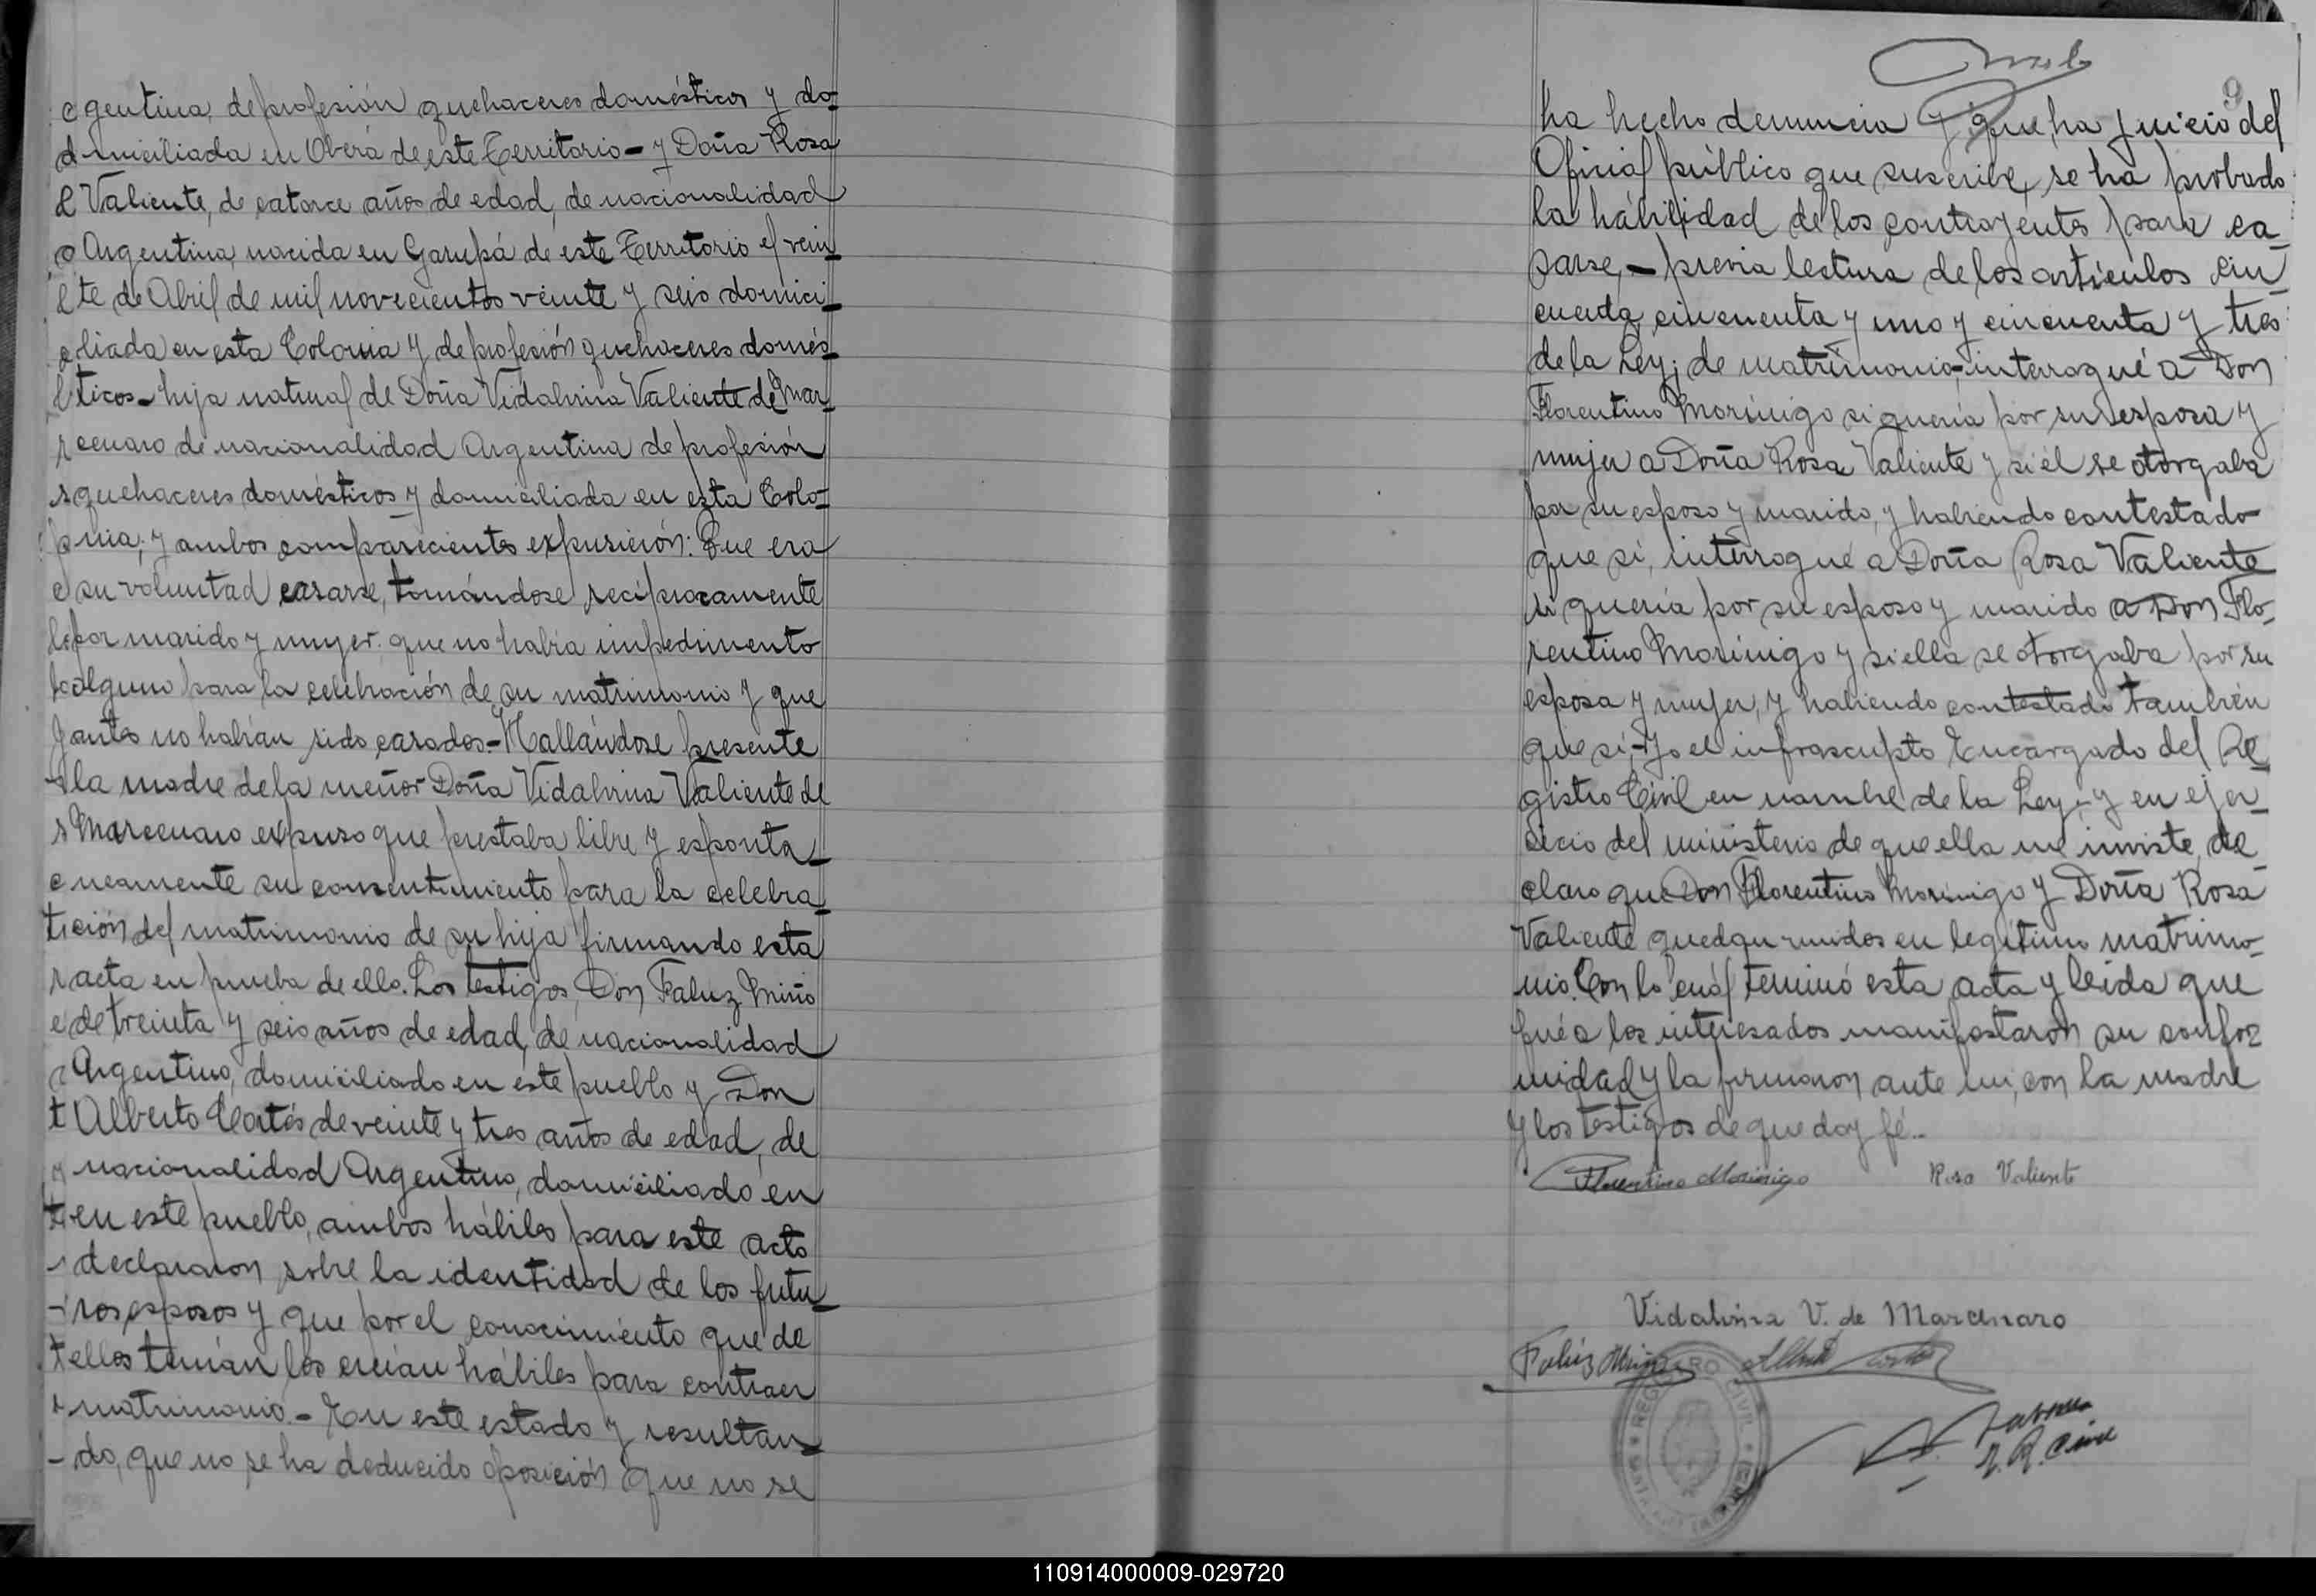 gentina, de profesión quehaceres domésticos y do-
miciliada en Oberá de este Territorio - y Doña Rosa
Valiente, de catorce años de edad, de nacionalidad
Argentina, nacida en Garupá de este Territorio el vein-
te de Abril de mil novecientos veinte y seis domici-
liada en esta Colonia y de profesión quehaceres domés-
ticos - hija natural de Doña Vidalvina Valiente de Mar-
cenaro de nacionalidad Argentina de profesión
quehaceres domésticos y domiciliada en esta Colo-
nia; y ambos comparecientes expusierón: Que era
su voluntad casarse, tomándose reciprocamente
por marido y mujer. que no había impedimento
alguno para la celebración de su matrimonio y que
antes no habían sido casados.- Hallándose presente
la madre de la menor Doña Vidalvina Valiente de
Marcenaro expuso que prestaba libre y esponta-
neamente su consentimiento para la celebra-
ción del matrimonio de su hija firmando esta
acta en prueba de ello. Los testigos, Don Faluz Miño
de treinta y seis años de edad, de nacionalidad
Argentino, domiciliado en este pueblo y Don
Alberto Cortés de veinte y tres años de edad, de
nacionalidad Argentino, domiciliado en
en este pueblo, ambos hábiles para este acto
declararon sobre la identidad de los futu-
ros esposos y que por el conocimiento que de
ellos tenían los creían hábiles para contraer
matrimonio.- En este estado y resultan-
do, que no se ha deducido oposición que no se
9
ha hecho denuncia y que ha juicio del
Oficial público que suscribe, se ha probado
la habilidad de los contrayentes para ca-
sarse, - previa lectura de los artículos cin-
cuenta, cincuenta y uno y cincuenta y tres
de la Ley; de matrimonio - interrogué a Don
Florentino Morinigo si quería por su esposa y
mujer a Doña Rosa Valiente y si él se otorgaba
por su esposo y marido, y habiendo contestado
que sí, interrogué a Doña Rosa Valiente
si quería por su esposo y marido a Don Flo-
rentino Morinigo y si ella se otorgaba por su
esposa y mujer, y habiendo contestado también
que sí,- Yo el infrascripto Encargado del Re-
gistro Civil en nombre de la Ley; y en ejer-
cicio del ministerio de que ella me inviste, de-
claro que Don Florentino Morinigo y Doña Rosa
Valiente quedan unidos en legítimo matrimo-
nio. Con lo cuál terminó esta acta y leída que
fué a los interesados manifostaron su confor
midad y la firmaron ante mi, con la madre
y los testigos de que doy fé.-
Florentino Morinigo Rosa Valiente
Vidalvina V. de Marcenaro
Faluz Miño Alberto Cortés
REGISTRO CIVIL
110914000009-029720